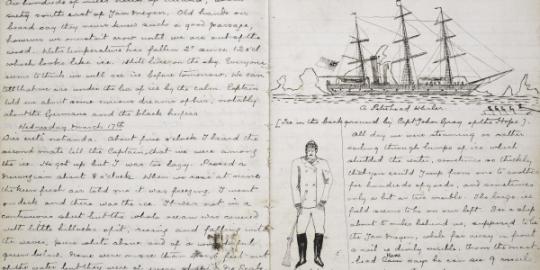 hundreds of miles North of Iceland, about
sixty south east of Jan Meyen. Old hands on
board say they never knew such a good passage,
however we mustn't crow until we are out of the
wood. Water temperature has fallen 2° since 12 o'd
which looks like ice. White line on the sky. Everyone
seems to think we will see ice before tomorrow. We can
tell that we are under the lee of ice by the calm. Captain
told me about some curious dreams of his, notably
about the Germans and the black heifers
Wednesday March 17th
about five o'clock I heard the
second mate tell the Captain that we were among
the ice. He got up but I was too lazy. Passed a
Norwegian about 8 o'clock. When we rose at nine
the keen fresh air told me it was freezing. I went
on deck and there was the ice. It was not in a
continuous sheet but the whole ocean was covered
with little hillocks of it, rising and falling with
the waves, pure white above and of a wonderful
green below. None were more than feet out
of the water but they were of every shape. No seals
A Peterhead Whaler
[Ice in the background by Capt John Gray of the Hope].
All day we were steaming or rather
sailing through lumps of ice which
studded the water, sometimes so thickly
that you could jump from one to another
for hundreds of yards, and sometimes
only a bit or two visible. The large ice
field seems to be our left. Saw a ship
about to make behind us, supposed to be
the Jan Meyen, while far away in front
a sail is dimly visible from the mast
head. Can see 9 mile